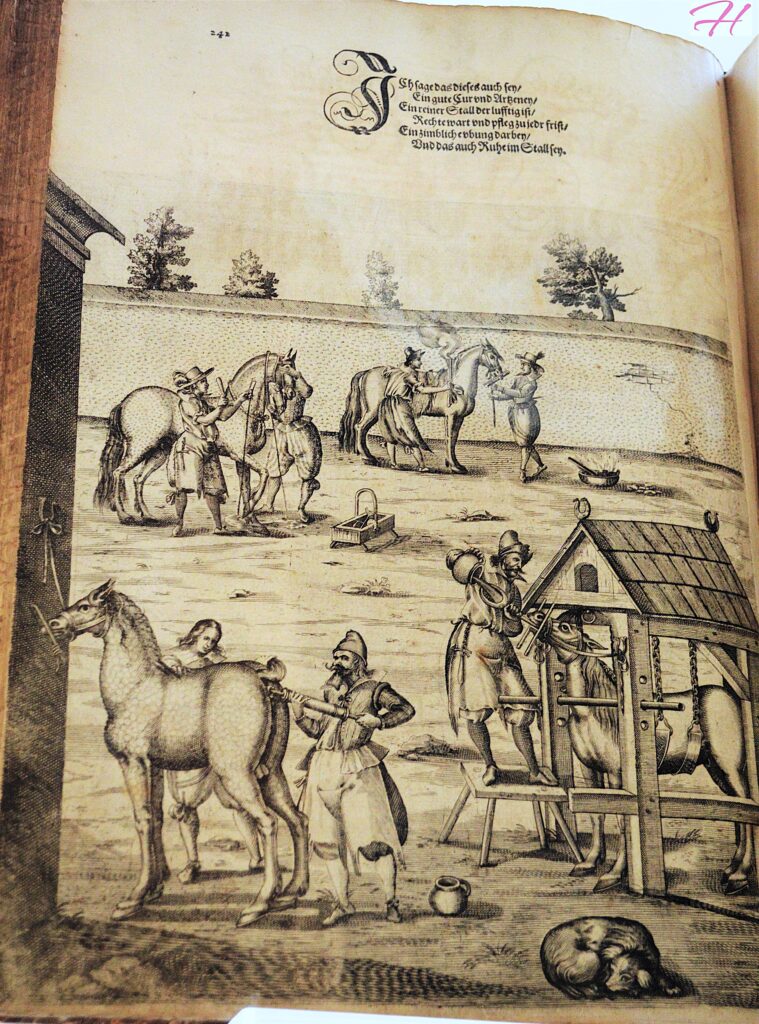 242
ICh sage das dieses auch sey/
Ein gute Cur vnd Artzeney/
Ein reiner Stall der lufftig ist/
Rechte wart vnd pfleg zu jedr frist/
Ein zimblich vbung darbey/
Vnd das auch Ruhe im Stall sey.
H